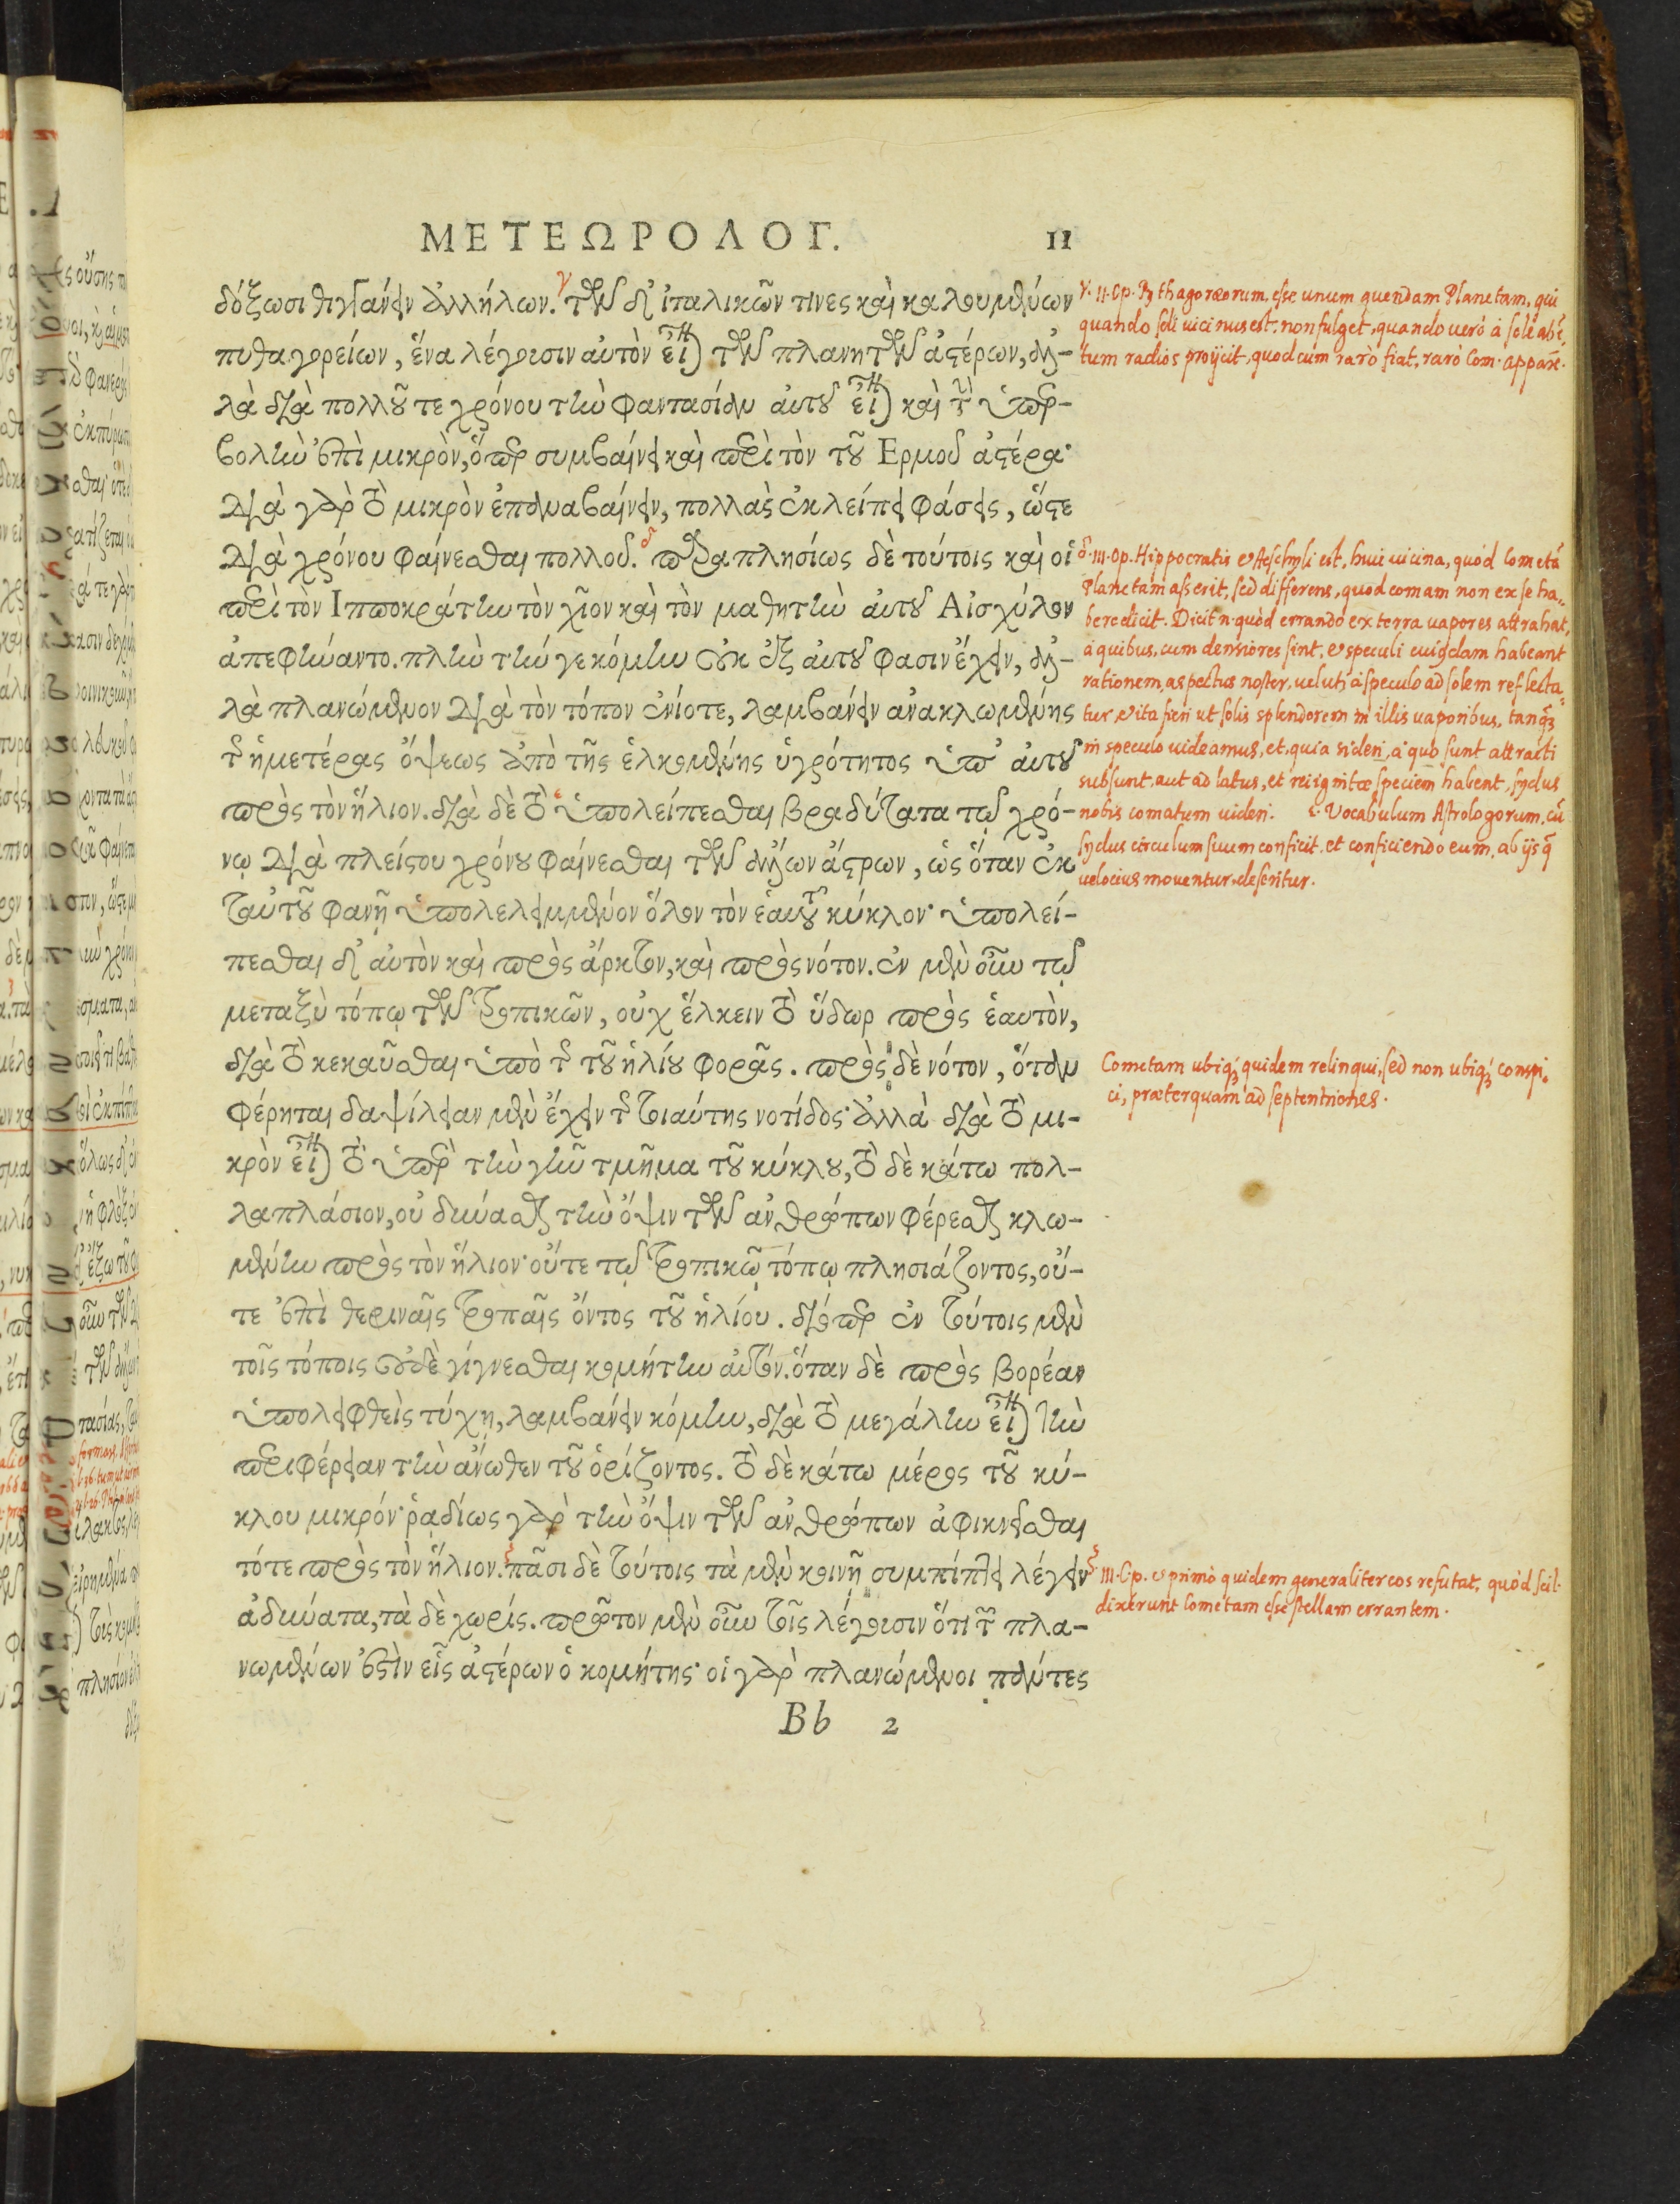 ΜΕΤΕΩΡΟΛΟΓ. 11
δόξωσι θιγγάνειν ἀλλήλων. γ τῶν δ' ἰταλικῶν τινες καὶ καλουμένων
πυθαγορείων, ἕνα λέγουσιν αὐτὸν εἶναι τῶν πλανητῶν ἀστέρων, ἀλ-
λὰ διὰ πολλοῦ τε χρόνου τὴν φαντασίαν αὐτοῦ εἶναι καὶ τὴν ὑπερ-
βολὴν ἐπὶ μικρὸν, ὅπερ συμβαίνει καὶ περὶ τὸν τοῦ Ερμοῦ ἀστέρα·
διὰ γὰρ τὸ μικρὸν ἐπαναβαίνειν, πολλὰς ἐκλείπει φάσεις, ὥστε
διὰ χρόνου φαίνεσθαι πολλοῦ. δ παραπλησίως δὲ τούτοις καὶ οἱ
περὶ τὸν Ιπποκράτην τὸν χῖον καὶ τὸν μαθητὴν αὐτοῦ Αἰσχύλον
ἀπεφήναντο. πλὴν τήν γε κόμην οὐκ ἐξ αὐτοῦ φασιν ἔχειν, ἀλ-
λὰ πλανώμενον διὰ τὸν τόπον ἐνίοτε, λαμβάνειν ἀνακλωμένης
τῆς ἡμετέρας ὄψεως ἀπὸ τῆς ἑλκομένης ὑγρότητος ὑπ' αὐτοῦ
πρὸς τὸν ἥλιον. διὰ δὲ τὸ ε ὑπολείπεσθαι βραδύτατα τῷ χρό-
νῳ διὰ πλείστου χρόνου φαίνεσθαι τῶν ἄλλων ἄστρων, ὡς ὅταν ἐκ
ταὐτοῦ φανῇ ὑπολελειμμένον ὅλον τὸν ἑαυτοῦ κύκλον· ὑπολεί-
πεσθαι δ' αὐτὸν καὶ πρὸς ἄρκτον, καὶ πρὸς νότον. ἐν μὲν οὖν τῷ
μεταξὺ τόπῳ τῶν τροπικῶν, οὐχ ἕλκειν τὸ ὕδωρ πρὸς ἑαυτὸν,
διὰ τὸ κεκαῦσθαι ὑπὸ τῆς τοῦ ἡλίου φορᾶς. πρὸς δὲ νότον, ὅταν
φέρηται δαψίλειαν μὲν ἔχειν τῆς τοιαύτης νοτίδος· ἀλλὰ διὰ τὸ μι-
κρὸν εἶναι τὸ ὑπὲρ τὴν γῆν τμῆμα τοῦ κύκλου, τὸ δὲ κάτω πολ-
λαπλάσιον, οὐ δύνασθαι τὴν ὄψιν τῶν ἀνθρώπων φέρεσθαι κλω-
μένην πρὸς τὸν ἥλιον· οὔτε τῷ τροπικῷ τόπῳ πλησιάζοντος, οὔ-
τε ἐπὶ θεριναῖς τροπαῖς ὄντος τοῦ ἡλίου. διόπερ ἐν τούτοις μὲν
τοῖς τόποις οὐδὲ γίγνεσθαι κομήτην αὐτόν. ὅταν δὲ πρὸς βορέαν
ὑπολειφθεὶς τύχῃ, λαμβάνειν κόμην, διὰ τὸ μεγάλην εἶναι τὴν
περιφέρειαν τὴν ἄνωθεν τοῦ ὁρίζοντος. τὸ δὲ κάτω μέρος τοῦ κύ-
κλου μικρόν· ῥᾳδίως γὰρ τὴν ὄψιν τῶν ἀνθρώπων ἀφικνεῖσθαι
τότε πρὸς τὸν ἥλιον. ξ πᾶσι δὲ τούτοις τὰ μὲν κοινῇ συμπίπτει λέγειν
ἀδύνατα, τὰ δὲ χωρίς. πρῶτον μὲν οὖν τοῖς λέγουσιν ὅτι τῶν πλα-
νωμένων ἐστὶν εἷς ἀστέρων ὁ κομήτης· οἱ γὰρ πλανώμενοι πάντες
Bb 2
γ. II. Op. Pythagoræorum, esse unum quendam Planetam, qui
quando soli vicinus est, non fulget, quando verò à sole abi-
tum radios projicit, quod cùm rarò fiat, rarò Com. apparet.
δ. III. Op. Hippocratis & Aeschyli est, huic vicina, quòd cometã
Planetam asserit, sed differens, quod comam non ex se ha-
bere dicit. Dicit n. quòd errando ex terra vapores attrahat,
à quibus, cum densiores sint, & speculi cuiusdam habeant
rationem, aspectus noster, velut à speculo ad solem reflecta-
tur & ita fieri ut solis splendorem in illis vaporibus, tanq̃
in speculo videamus, et, quia sideri, à quo sunt attracti
subsunt, aut ad latus, et rei ignitæ speciem habent, sydus
nobis comatum videri. ε. Vocabulum Astrologorum, cũ
sydus circulum suum conficit, et conficiendo eum, ab ijs q̃
velocius moventur, deseritur.
Cometam ubiq; quidem relinqui, sed non ubiq; conspi-
ci, præterquam ad septentriones.
ξ III. Op. & primò quidem generaliter eos refutat, quòd scil.
dixerunt Cometam esse stellam errantem.